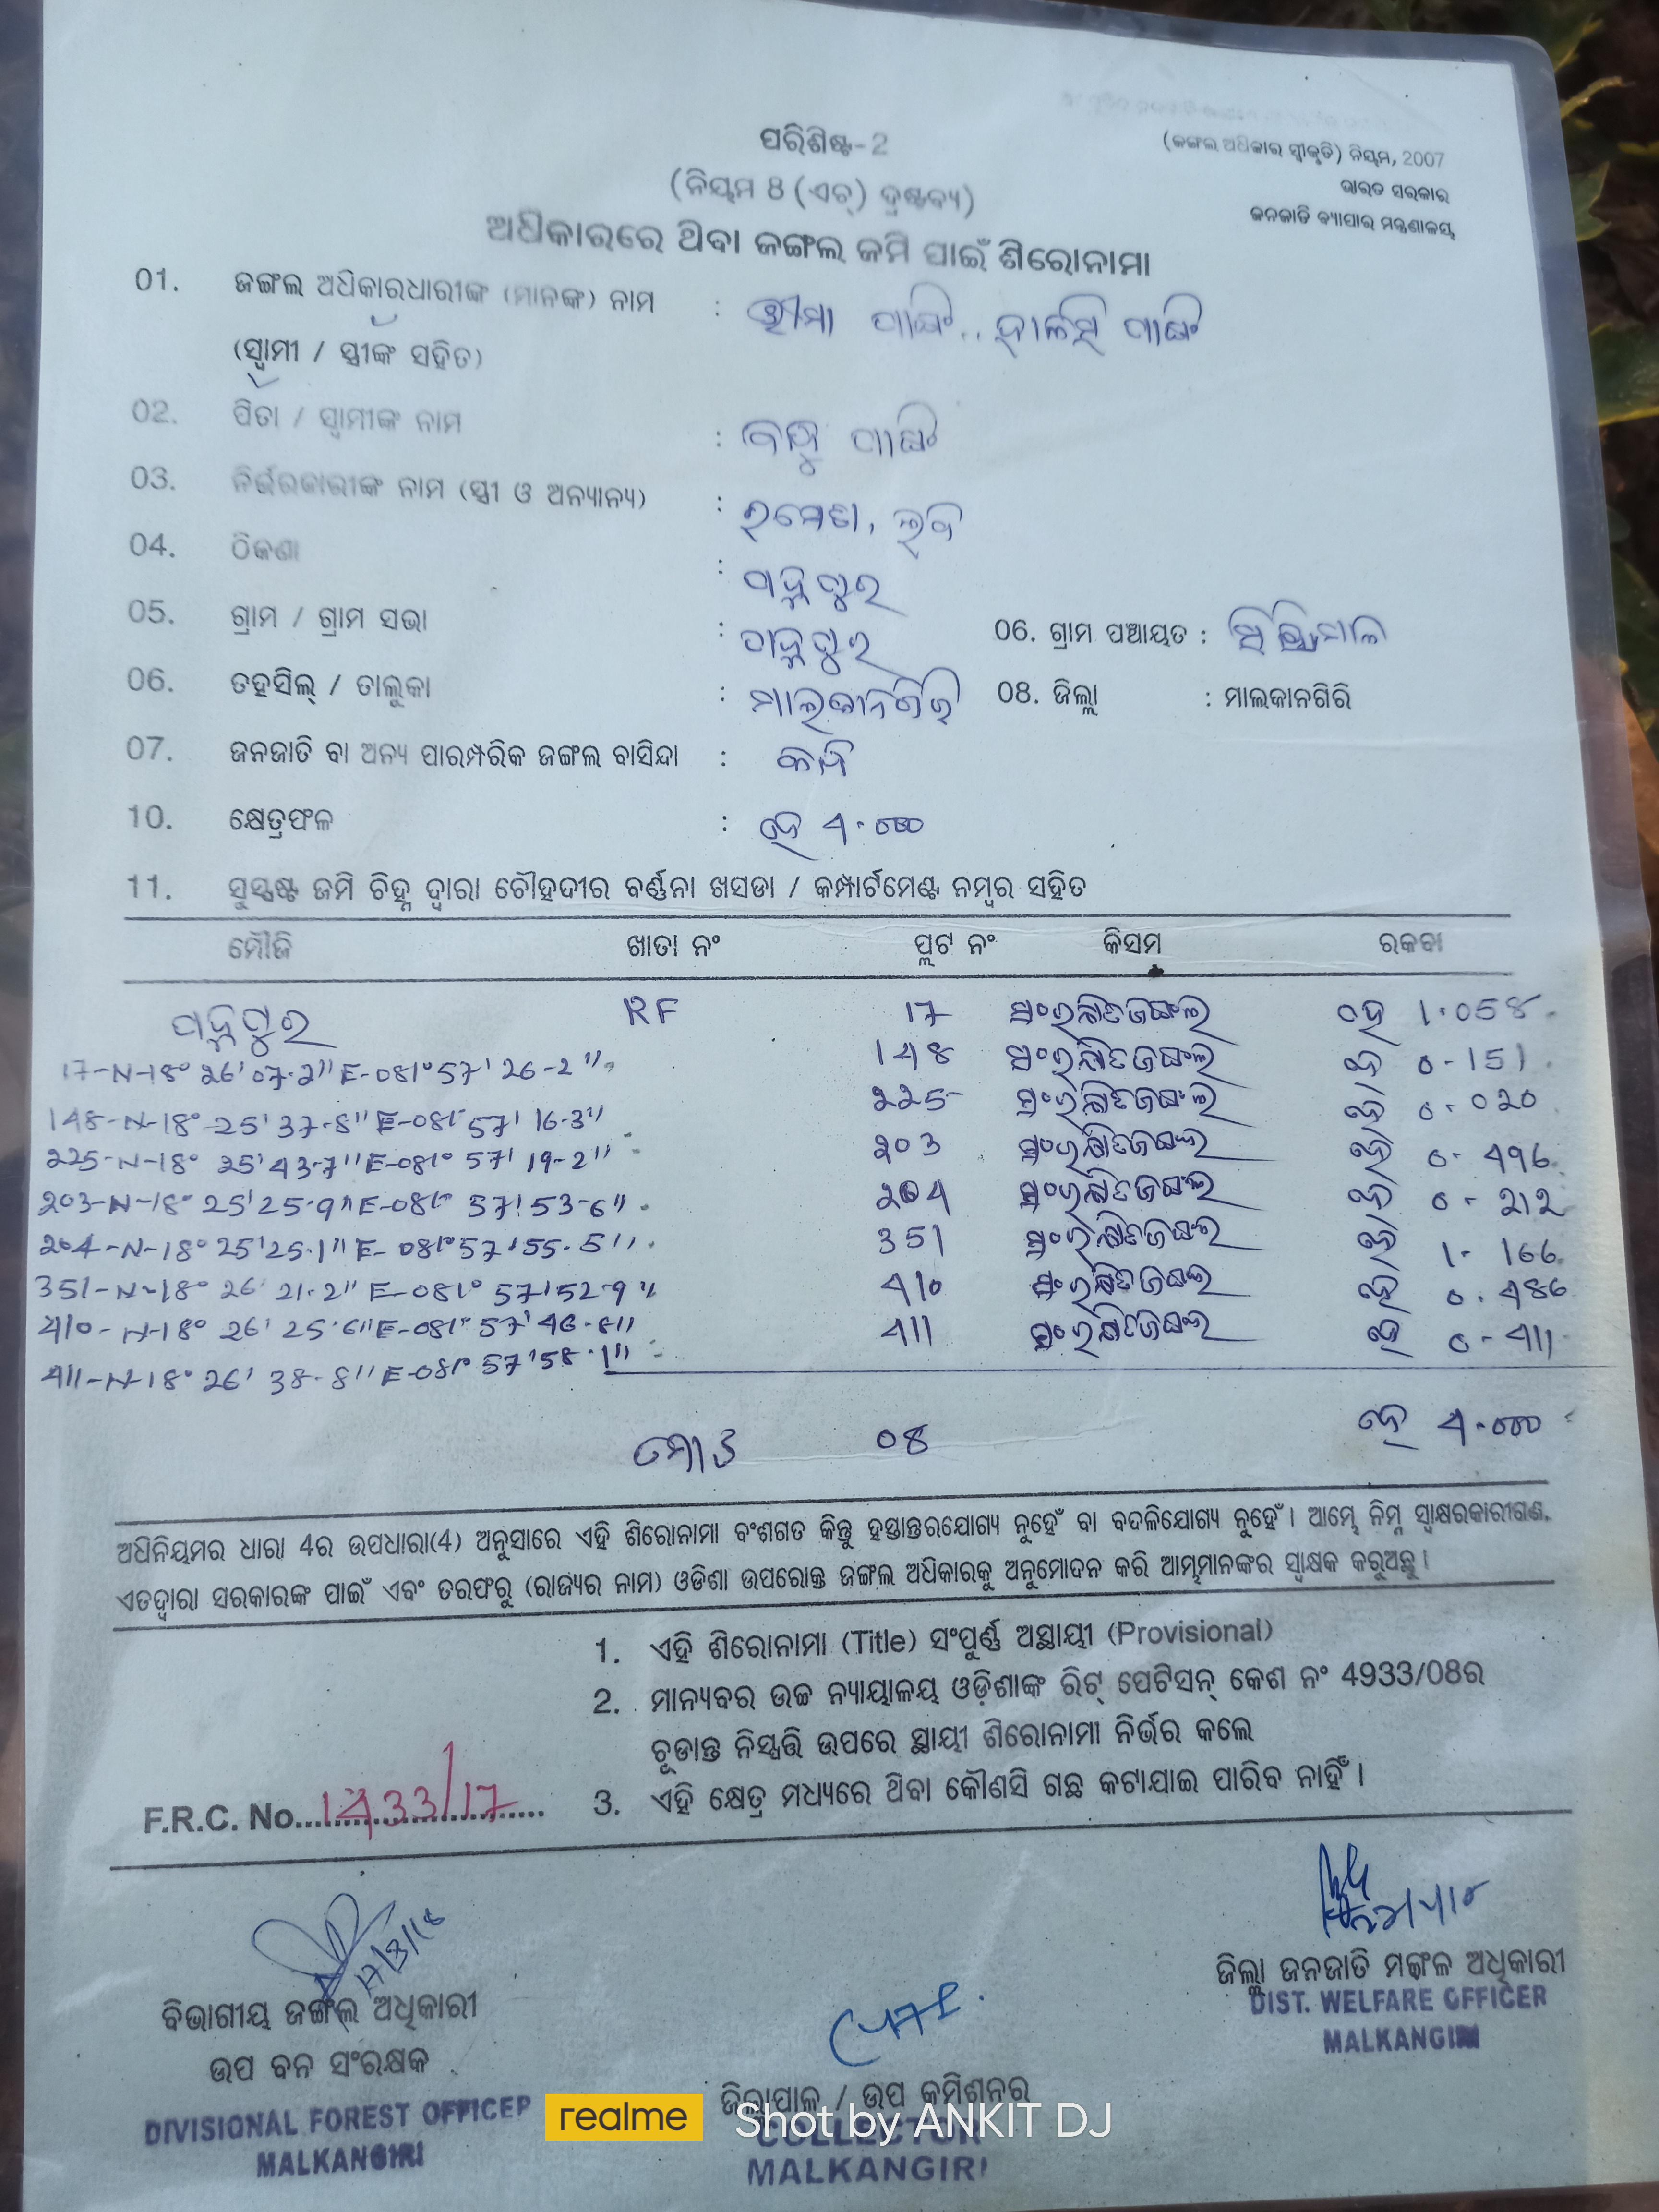 ପରିଶିଷ୍ଟ-2
(ଜଙ୍ଗଲ ଅଧିକାର ସ୍ୱୀକୃତି) ନିୟମ, 2007
(ନିୟମ 8 (ଏଚ୍) ଦ୍ରଷ୍ଟବ୍ୟ)
ଭାରତ ସରକାର
ଜନଜାତି ବ୍ୟାପାର ମନ୍ତ୍ରଣାଳୟ
ଅଧିକାରରେ ଥିବା ଜଙ୍ଗଲ ଜମି ପାଇଁ ଶିରୋନାମା
01. ଜଙ୍ଗଲ ଅଧିକାରଧାରୀଙ୍କ (ମାନଙ୍କ) ନାମ :
(ସ୍ୱାମୀ / ସ୍ତ୍ରୀଙ୍କ ସହିତ)
02. ପିତା / ସ୍ୱାମୀଙ୍କ ନାମ :
03. ନିର୍ଭରକାରୀଙ୍କ ନାମ (ସ୍ତ୍ରୀ ଓ ଅନ୍ୟାନ୍ୟ) : ରମେଶ, ଲ
04. ଠିକଣା :
05. ଗ୍ରାମ / ଗ୍ରାମ ସଭା : 06. ଗ୍ରାମ ପଞ୍ଚାୟତ :
06. ତହସିଲ୍ / ତାଲୁକା : ମାଲକାନଗିରି 08. ଜିଲ୍ଲା : ମାଲକାନଗିରି
07. ଜନଜାତି ବା ଅନ୍ୟ ପାରମ୍ପରିକ ଜଙ୍ଗଲ ବାସିନ୍ଦା :
10. କ୍ଷେତ୍ରଫଳ : ହେ ୪.୦୦୦
11. ସୁସ୍ପଷ୍ଟ ଜମି ଚିହ୍ନ ଦ୍ୱାରା ଚୌହଦୀର ବର୍ଣ୍ଣନା ଖସଡା / କମ୍ପାର୍ଟମେଣ୍ଟ ନମ୍ବର ସହିତ
ମୌଜି ଖାତା ନଂ ପ୍ଲଟ ନଂ କିସମ ରକବା
RF 17 ସଂରକ୍ଷିତ ଜଙ୍ଗଲ ହେ 1.058
17-N-18° 26' 07.2" E-081° 57' 26-2"
148 ସଂରକ୍ଷିତ ଜଙ୍ଗଲ ହେ 0-151
148-N-18° 25' 37-8" E-081° 57' 16-3"
225 ସଂରକ୍ଷିତ ଜଙ୍ଗଲ ହେ 0.020
225-N-18° 25' 43-7" E-081° 57' 19-2"
203 ସଂରକ୍ଷିତ ଜଙ୍ଗଲ ହେ 0-496
203-N-18° 25' 25-9" E-081° 57' 53-6"
204 ସଂରକ୍ଷିତ ଜଙ୍ଗଲ ହେ 0-212
204-N-18° 25' 25.1" E-081° 57' 55.5"
351 ସଂରକ୍ଷିତ ଜଙ୍ଗଲ ହେ 1-166
351-N-18° 26' 21-2" E-081° 57' 52-9"
410 ସଂରକ୍ଷିତ ଜଙ୍ଗଲ ହେ 0.486
410-N-18° 26' 25.6" E-081° 57'
411 ସଂରକ୍ଷିତ ଜଙ୍ଗଲ ହେ 0-411
411-N-18° 26' 38-8" E-081° 57' 58.1"
ମୋଟ 08 ହେ ୪.୦୦୦
ଅଧିନିୟମର ଧାରା 4ର ଉପଧାରା(4) ଅନୁସାରେ ଏହି ଶିରୋନାମା ବଂଶଗତ କିନ୍ତୁ ହସ୍ତାନ୍ତରଯୋଗ୍ୟ ନୁହେଁ ବା ବଦଳିଯୋଗ୍ୟ ନୁହେଁ। ଆମ୍ଭେ ନିମ୍ନ ସ୍ୱାକ୍ଷରକାରୀଗଣ.
ଏତଦ୍ୱାରା ସରକାରଙ୍କ ପାଇଁ ଏବଂ ତରଫରୁ (ରାଜ୍ୟର ନାମ) ଓଡିଶା ଉପରୋକ୍ତ ଜଙ୍ଗଲ ଅଧିକାରକୁ ଅନୁମୋଦନ କରି ଆମ୍ଭମାନଙ୍କର ସ୍ୱାକ୍ଷକ କରୁଅଛୁ।
1. ଏହି ଶିରୋନାମା (Title) ସଂପୂର୍ଣ୍ଣ ଅସ୍ଥାୟୀ (Provisional)
2. ମାନ୍ୟବର ଉଚ୍ଚ ନ୍ୟାୟାଳୟ ଓଡ଼ିଶାଙ୍କ ରିଟ୍ ପେଟିସନ୍ କେଶ ନଂ 4933/08ର
ଚୂଡାନ୍ତ ନିସ୍ପତ୍ତି ଉପରେ ସ୍ଥାୟୀ ଶିରୋନାମା ନିର୍ଭର କଲେ
3. ଏହି କ୍ଷେତ୍ର ମଧ୍ୟରେ ଥିବା କୌଣସି ଗଛ କଟାଯାଇ ପାରିବ ନାହିଁ।
F.R.C. No. 1433/17
17/3/18
ବିଭାଗୀୟ ଜଙ୍ଗଲ ଅଧିକାରୀ
ଉପ ବନ ସଂରକ୍ଷକ
DIVISIONAL FOREST OFFICER
MALKANGIRI
ଜିଲ୍ଲାପାଳ / ଉପ କମିଶନର
COLLECTOR
MALKANGIRI
ଜିଲ୍ଲା ଜନଜାତି ମଙ୍ଗଳ ଅଧିକାରୀ
DIST. WELFARE OFFICER
MALKANGIRI
realme Shot by ANKIT DJ